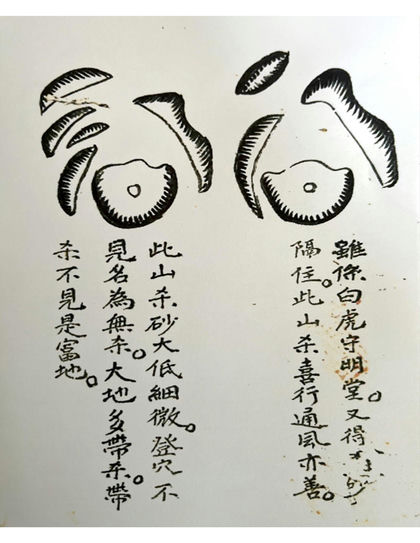 雖係白虎守明堂。又得砂
隔住。此山杀喜行通風亦善。
此山杀砂大低細微。登穴不
見名為無杀。大地多帶杀。帶
杀不見是富地。